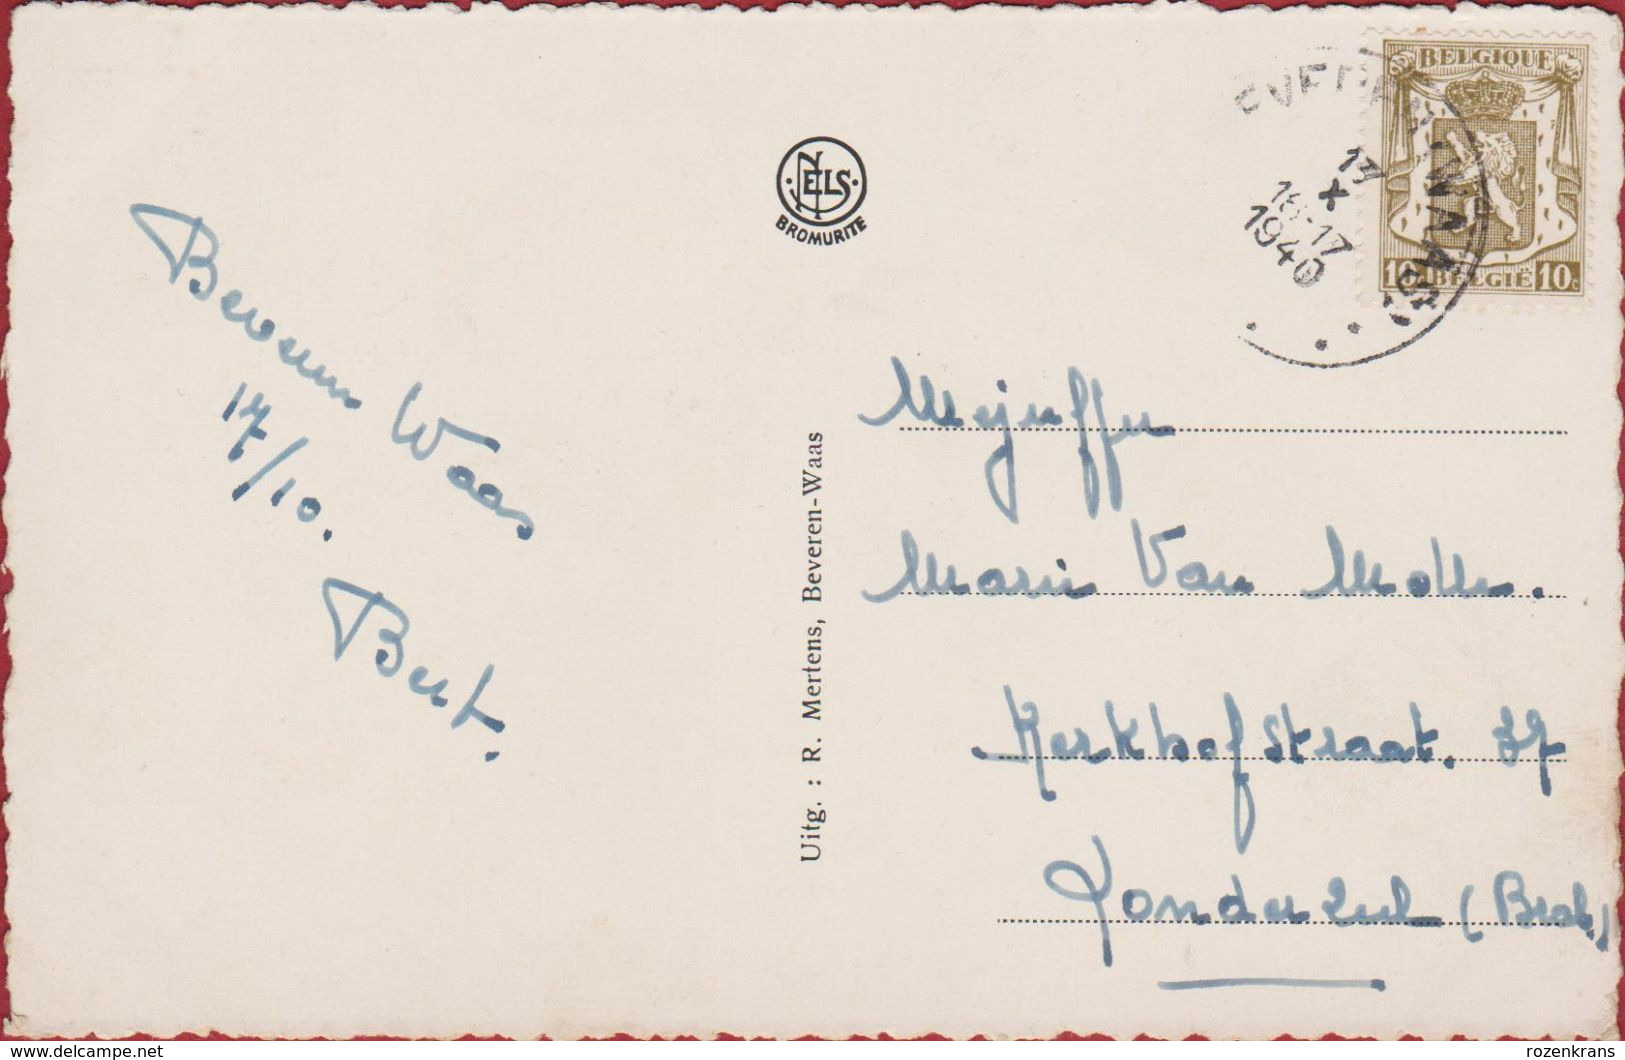 BELGIQUE
10c BELGIË 10c
13
X
16-17
1940
NELS
BROMURITE
Beveren Waas
17/10.
Bert.
Uitg. : R. Mertens, Beveren-Waas
Mejuffer
Marie Van Molle.
Kerkhofstraat. 37
Londerzeel (Brab.)
delcampe.net
rozenkrans